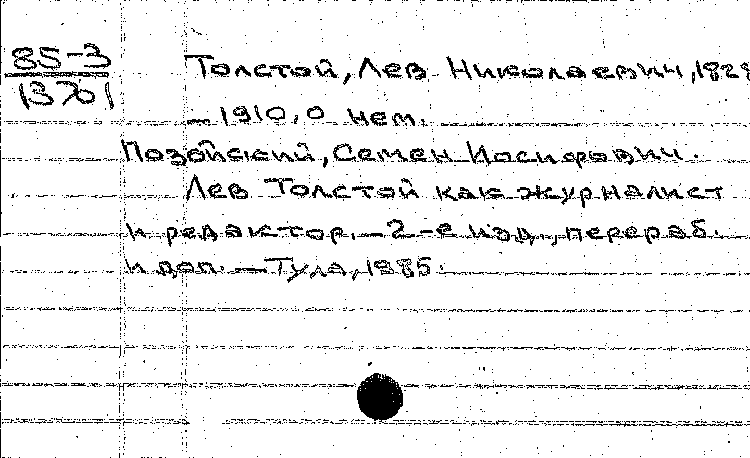 85-3
13701
Толстой, Лев Николаевич, 1828
– 1910, о нем.
Позойский, Семен Иосифович.
Лев Толстой как журналист
и редактор. – 2-е изд., перераб.
и доп. – Тула, 1985.